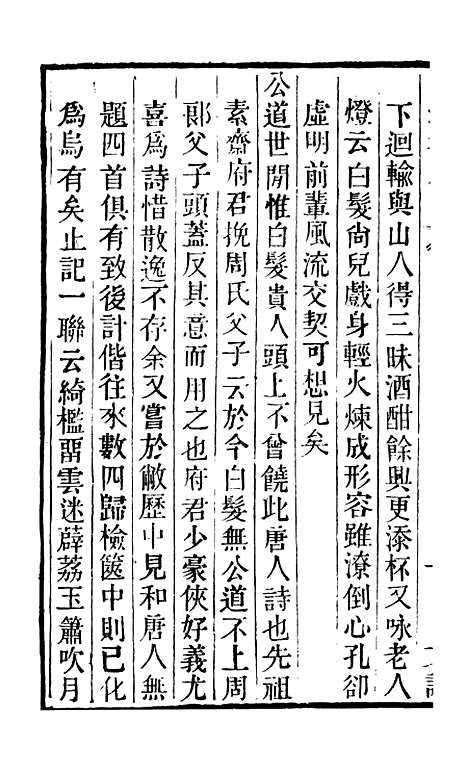 下迴輸與山人得三昧酒酣餘興更添杯又咏老人
燈云白髮尙兒戲身輕火煉成形容雖潦倒心孔卻
虛明前輩風流交契可想見矣
公道世閒惟白髮貴人頭上不曾饒此唐人詩也先祖
素齋府君挽周氏父子云於今白髮無公道不上周
郞父子頭蓋反其意而用之也府君少豪俠好義尤
喜爲詩惜散逸不存余又嘗於敝歷中見和唐人無
題四首俱有致後計偕往來數四歸檢篋中則已化
爲烏有矣止記一聯云綺檻畱雲迷薜荔玉簫吹月